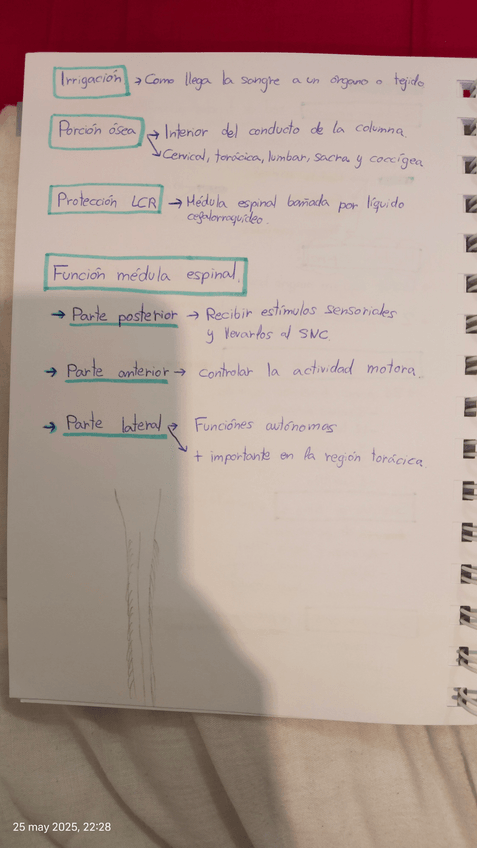 Irrigación → Como llega la sangre a un órgano o tejido
Porción ósea → Interior del conducto de la columna
↘ Cervical, torácica, lumbar, sacra y coccígea
Protección LCR → Médula espinal bañada por líquido
cefalorraquídeo.
Función médula espinal.
→ Parte posterior → Recibir estímulos sensoriales
y llevarlos al SNC.
→ Parte anterior → controlar la actividad motora.
→ Parte lateral → Funciónes autónomas
↘ + importante en la región torácica.
25 may 2025, 22:28